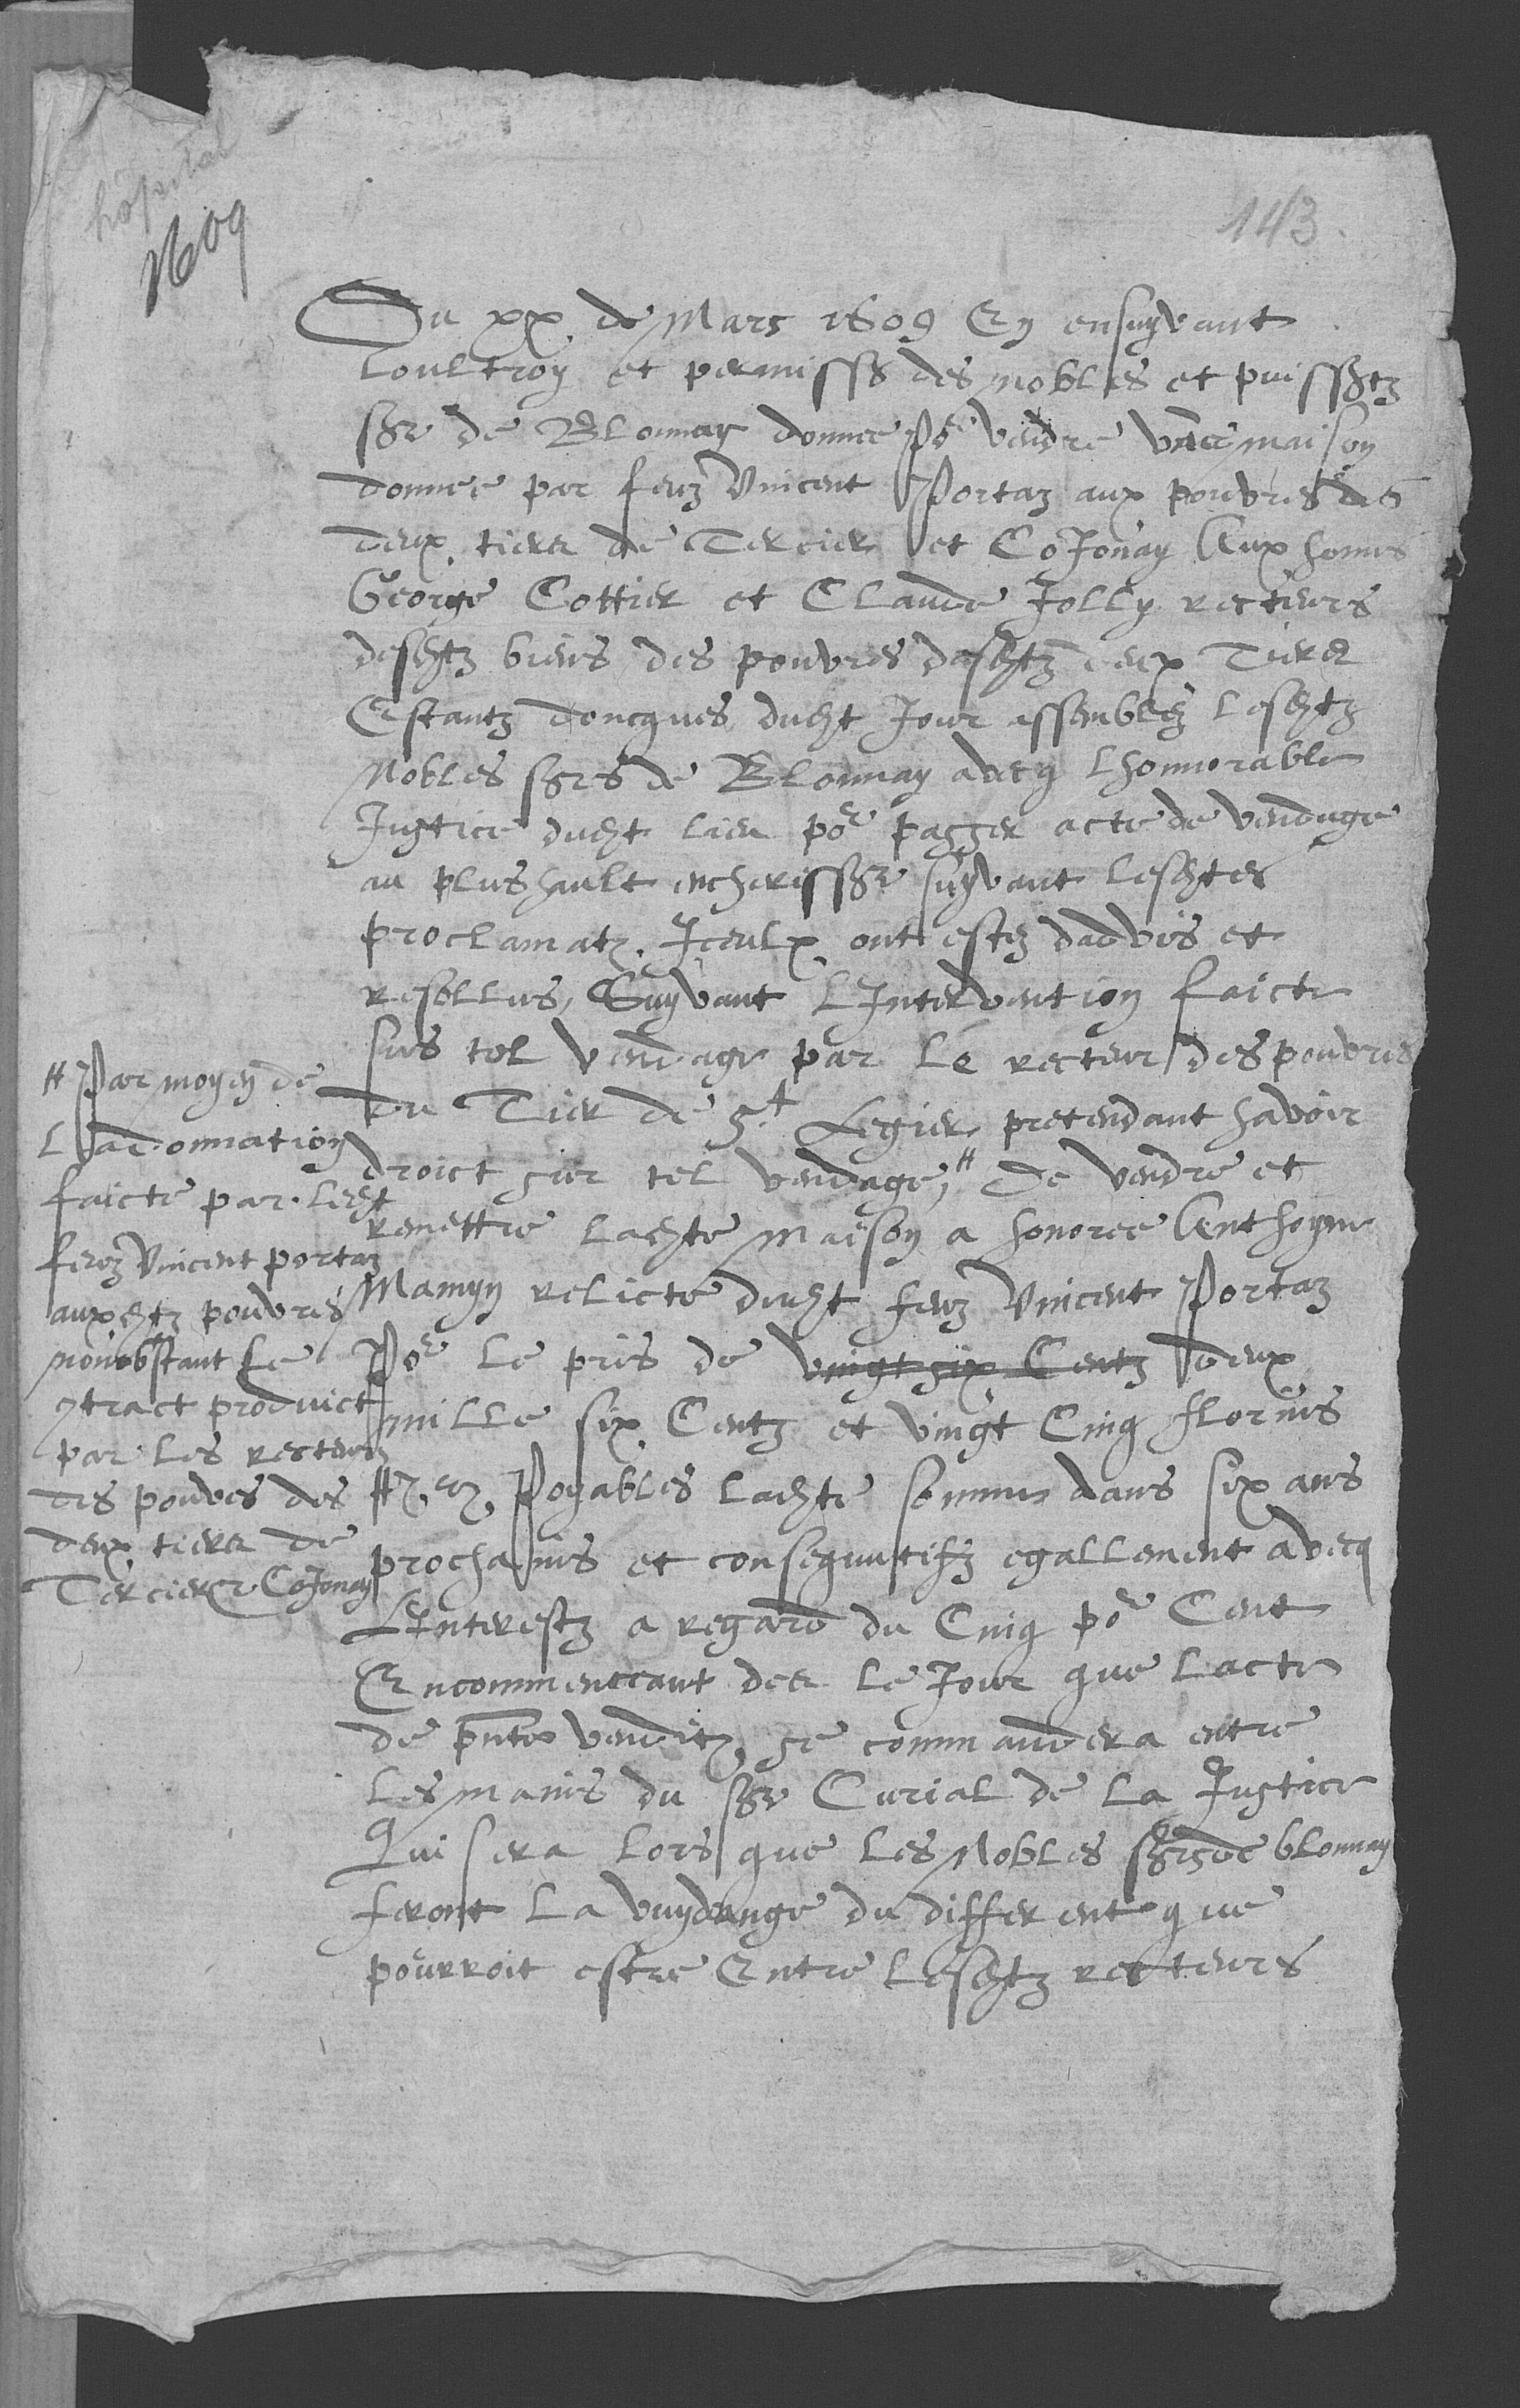 hospital
1609
143.
Du xx de Mars 1609 En ensuyvant
loultroy et permiss des nobles et puissātz
sgrs de Blonnay donnee por vendre vne maison
donnee par feuz Vincent Portaz aux pouvres des
deux tiers de Tercier et Cojonay Aux homes
George Cottier et Claude Jolly recteurs
desdtz biens des pouvres desdtz deux Tiers
Estantz doncques dudt Jour assemblez lesdtz
Nobles sgrs de Blonnay avecq lhonnorable
Justice dudt lieu por passer acte de vendage
au plus hault encherissr suyvant lesdtes
proclamatz. Iceulx ont estez dadvis et
resollus, Suyvant lIntervention faicte
sus tel vendage par le recteur des pouvres
du Tier de St Legier pretendant havoir
droict sur tel vendage, # De vendre et
remettre ladte maison a honoree Anthoyne
Mamyn relicte dudt feuz Vincent Portaz
Por le pris de vingt six Centz deux
mille six Centz et vingt Cinq florins
Poyables ladte somme dans six ans
prochains et consequutifz egallement avecq
LInterestz a regard du Cinq por Cent
Encommenceant des le Jour que lacte
de pnte venditz se commandera entre
les mains du sgr Curial de la Justice
Qui sera lors que les Nobles sgrs de blonnay
feront la vuydange du different que
pourroit estre Entre lesdtz recteurs
# Par moyen de
l adonnation
faicte par ledt
feuz Vincent portaz
auxdtz pouvres
nonobstant le
9tract produict
par les recteurs
des pouvres des
deux tiers de
Tercier et Cojonay